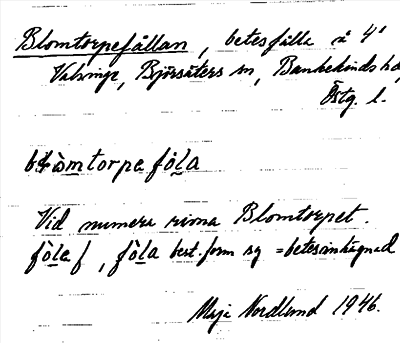 Blomtorpefållan, betesfålla å 4¹
Valsinge, Björsäters sn, Bankekinds hd,
Östg. l.
blòmtorpafola
Vid numera rivna Blomtorpet.
fòla f, fòla best. form sg = betesinhägnad
Maja Nordlund 1946.